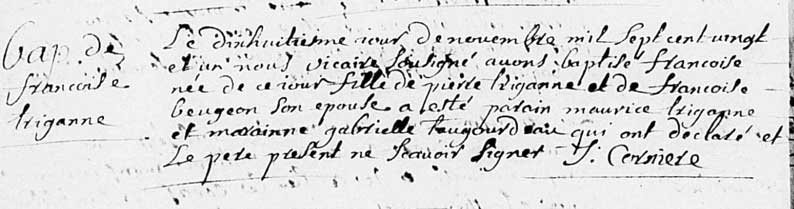 Bap. de
francoise
triganne
Le dixhuitiesme jour de novembre mil sept cent vingt
et un nous vicaire sousigné avons baptisé francoise
née de ce iour fille de pierre triganne et de francoise
beugeon son epouse a esté parain maurice triganne
et marainne gabrielle taugourdeau qui ont declaré et
le pere present ne scavoir signer J. Corniere